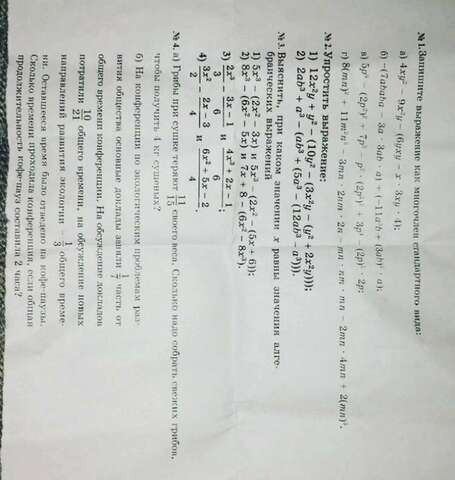 № 1. Запишите выражение как многочлен стандартного вида:
а) 4xy² − 9x²y − (6yxy − x · 3xy · 4);
№ 2. Упростить выражение:
1) 12x²y + y² − (10y² − (3x²y − (y² + 2x²y)));
2) 2ab³ + a³ − (ab³ + (5a³ − (12ab³ − a³))).
№ 3. Выяснить, при каком значении x равны значения алгебраических выражений
1) 5x³ − (2x² − 3x) и 5x³ − (2x² − (5x + 6));
2) 8x³ − (6x² − 5x) и 7x + 8 − (6x² − 8x³).
3) 2x²/3 − (3x − 1)/6 и (4x² + 2x − 1)/6
4) 3x²/2 − (2x − 3)/4 и (6x² + 5x − 2)/4
№ 4. а) Грибы при сушке теряют 11/15 своего веса. Сколько надо собрать свежих грибов,
чтобы получить 4 кг сушеных?
б) На конференции по экологическим проблемам раз-
вития общества основные доклады заняли 1/7 часть от
общего времени конференции. На обсуждение докладов
потратили 10/21 общего времени, на обсуждение новых
направлений развития экологии − 1/3 общего време-
ни. Оставшееся время было отведено на кофе-паузы.
Сколько времени проходила конференция, если общая
продолжительность кофе-пауз составила 2 часа?